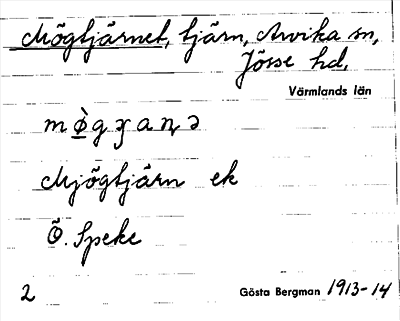 Mögtjärnet, tjärn, Arvika sn,
Jösse hd.
Värmlands län
Mjögtjärn ek
Ö. Speke
2
Gösta Bergman 1913-14